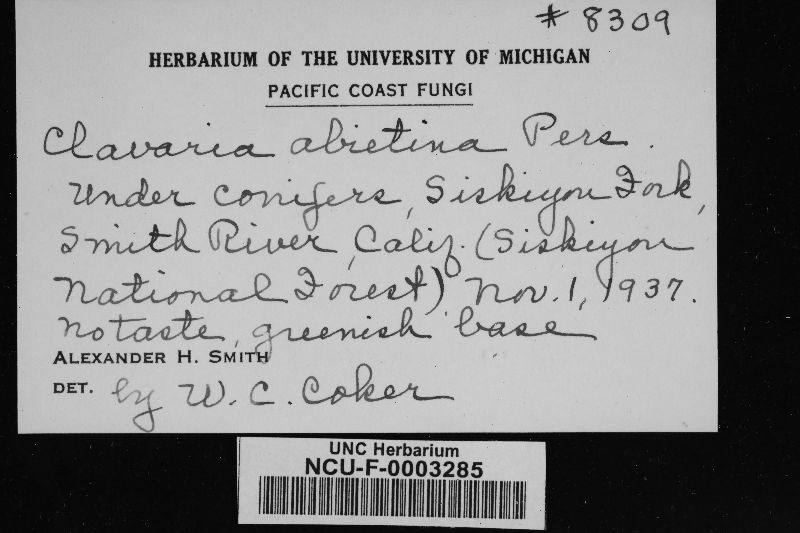 # 8309
HERBARIUM OF THE UNIVERSITY OF MICHIGAN
PACIFIC COAST FUNGI
Clavaria abietina Pers.
Under conifers, Siskiyou Fork,
Smith River, Calif. (Siskiyou
National Forest) Nov. 1, 1937.
No taste, greenish base
ALEXANDER H. SMITH
DET. by W. C. Coker
UNC Herbarium
NCU-F-0003285